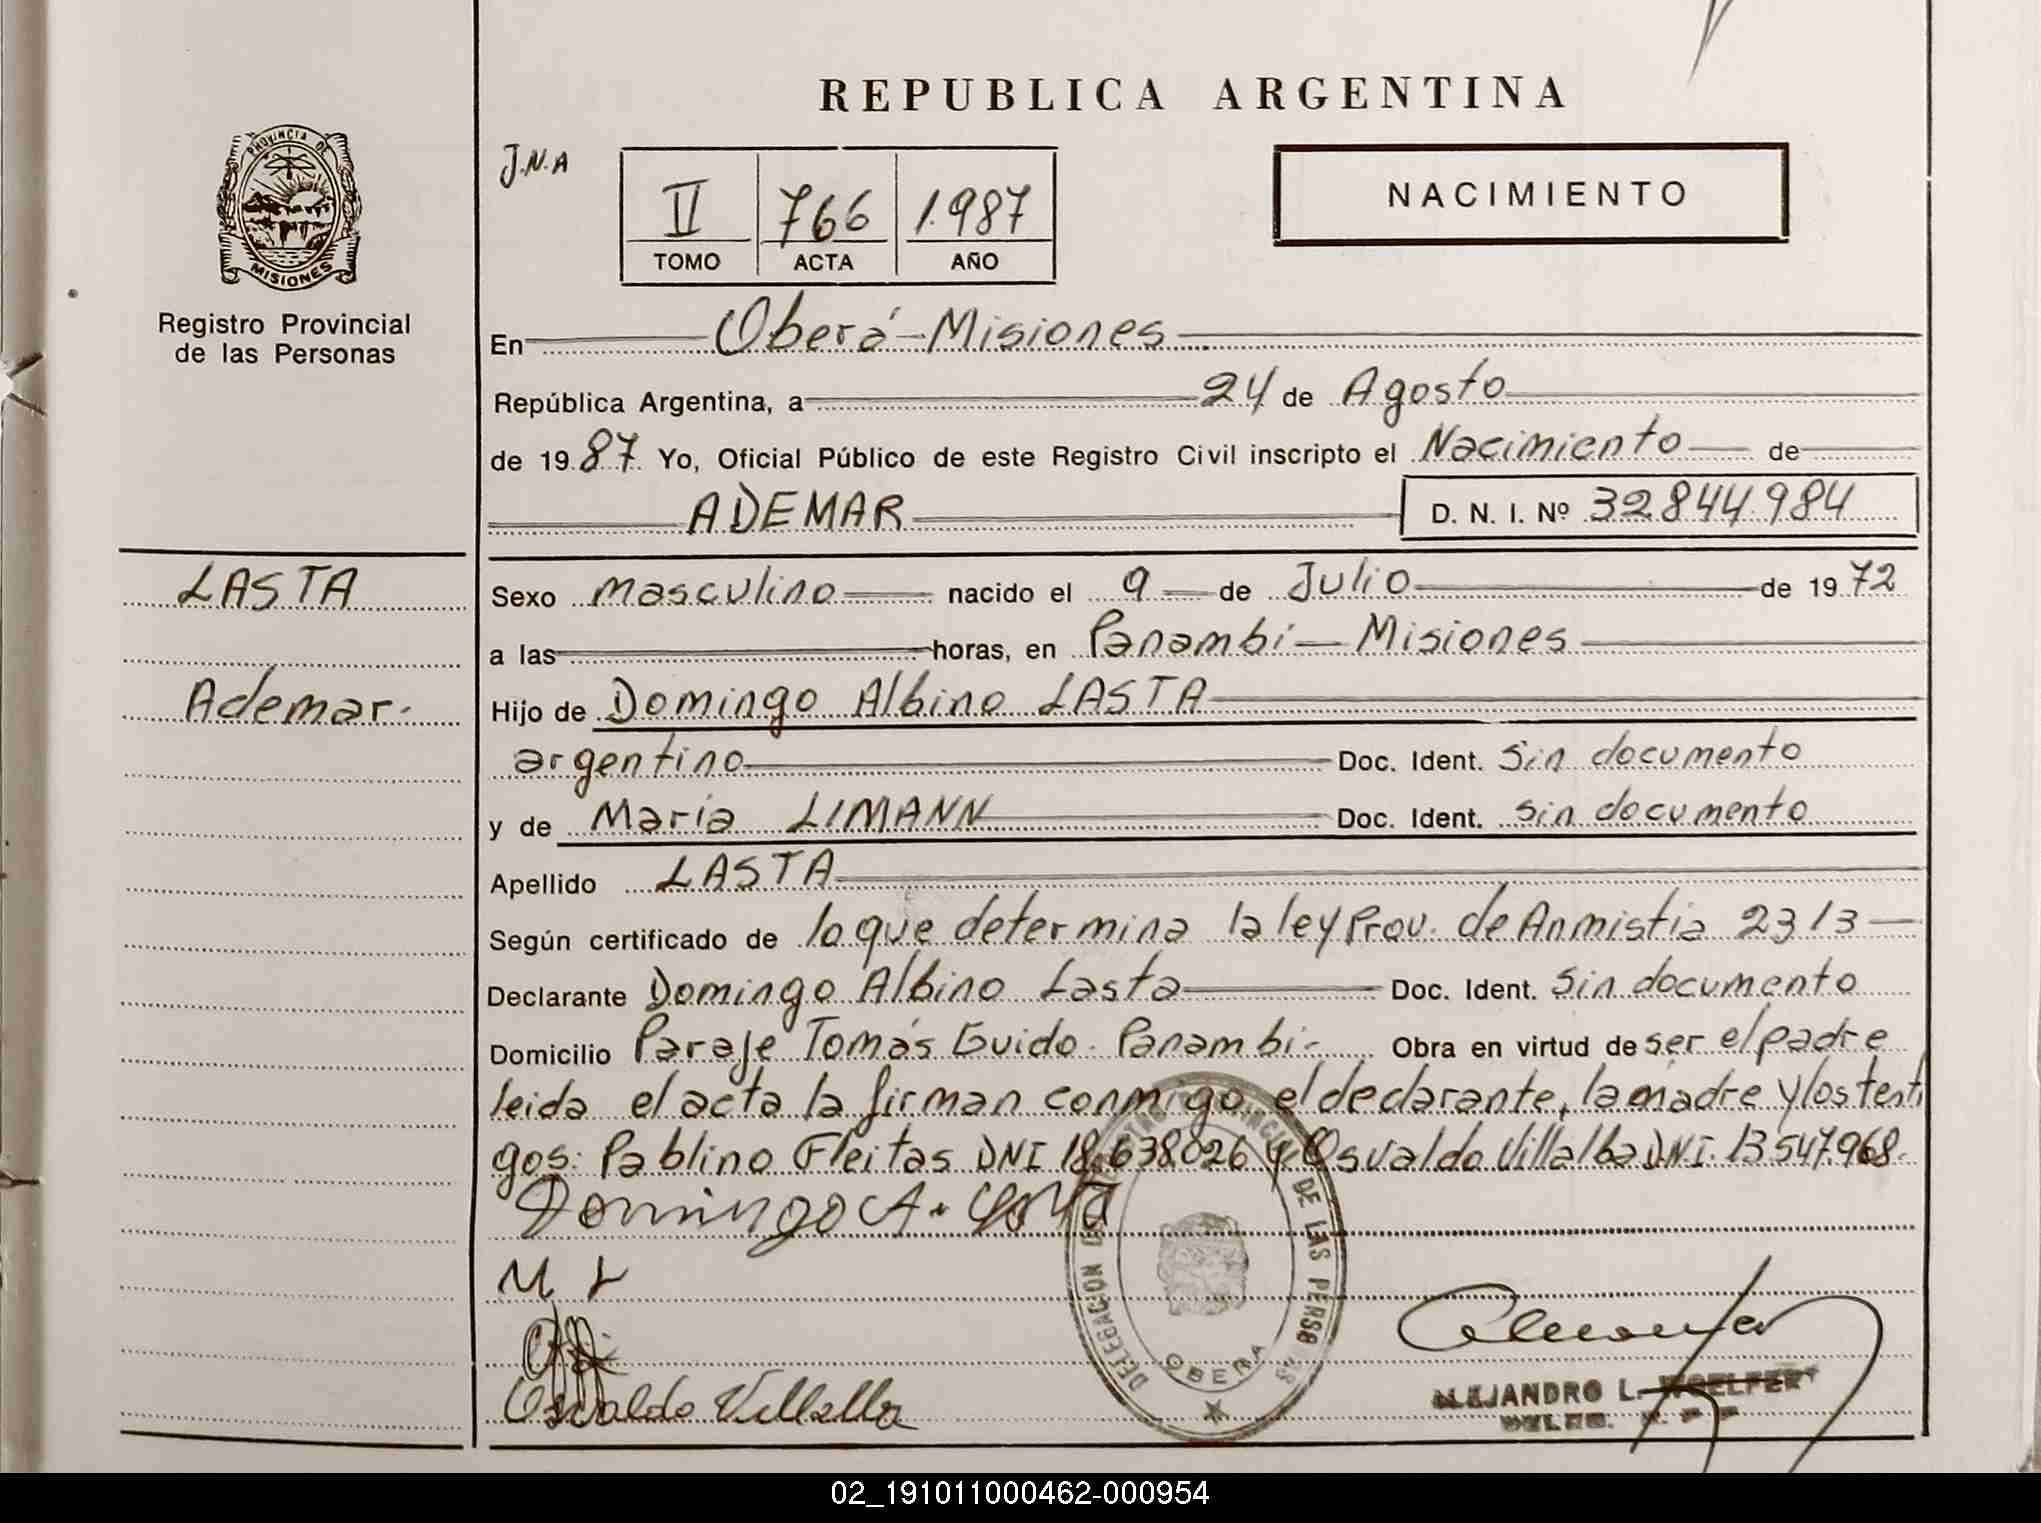 REPUBLICA ARGENTINA
PROVINCIA DE
MISIONES
Registro Provincial
de las Personas
J.N.A
II 766 1.987
TOMO ACTA AÑO
NACIMIENTO
En Oberá-Misiones
República Argentina, a 24 de Agosto
de 19 87 Yo, Oficial Público de este Registro Civil inscripto el Nacimiento de
ADEMAR D. N. I. Nº 32844.984
LASTA
Ademar.
Sexo masculino nacido el 9 de Julio de 19 72
a las horas, en Panambí - Misiones
Hijo de Domingo Albino LASTA
argentino Doc. Ident. Sin documento
y de María LIMANN Doc. Ident. sin documento
Apellido LASTA
Según certificado de lo que determina la ley Prov. de Anmistia 2313
Declarante Domingo Albino Lasta Doc. Ident. Sin documento
Domicilio Paraje Tomás Guido. Panambi- Obra en virtud de ser el padre
leida el acta la firman conmigo el declarante, la madre y los testi
gos: Pablino Fleitas DNI 18.638026 y Osvaldo Villalba DNI. 13547.968.
Domingo A. Lasta
M L
Osvaldo Villalba
DELEGACION DEL REGISTRO PROVINCIAL DE LAS PERSONAS
OBERA
ALEJANDRO L. WOELFERT
02_191011000462-000954